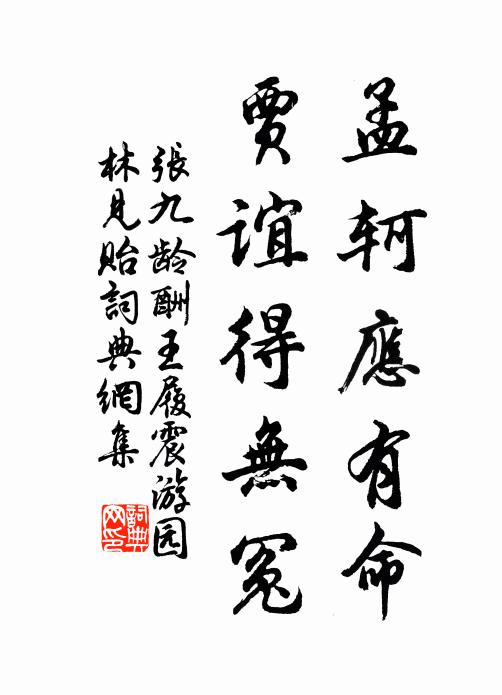 孟軻應有命
賈誼得無冤
張九龄酬王履震游园
林見貽詞典網集
詞典
网印